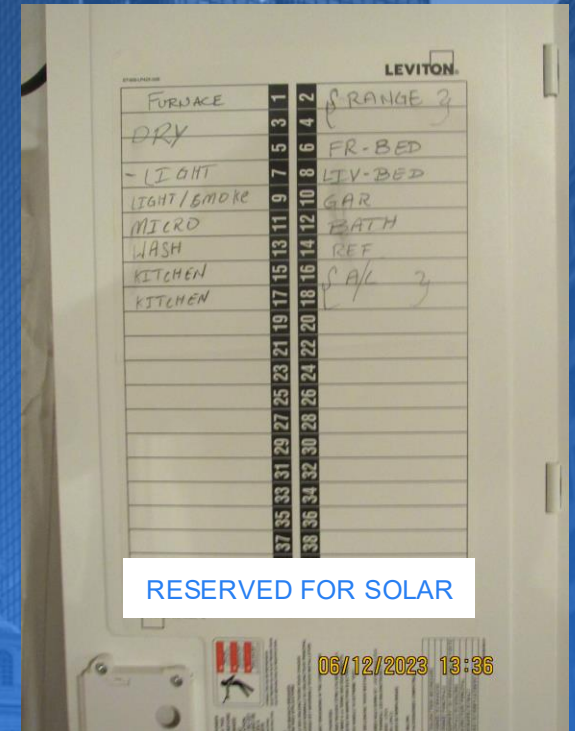 LEVITON
FURNACE 1 2 RANGE
DRY 3 4
5 6 FR-BED
-LIGHT 7 8 LIV-BED
LIGHT/SMOKE 9 10 GAR
MICRO 11 12 BATH
WASH 13 14 REF
KITCHEN 15 16 A/C
KITCHEN 17 18
19 20
21 22
23 24
25 26
27 28
29 30
31 32
33 34
35 36
37 38
RESERVED FOR SOLAR
06/12/2023 13:36